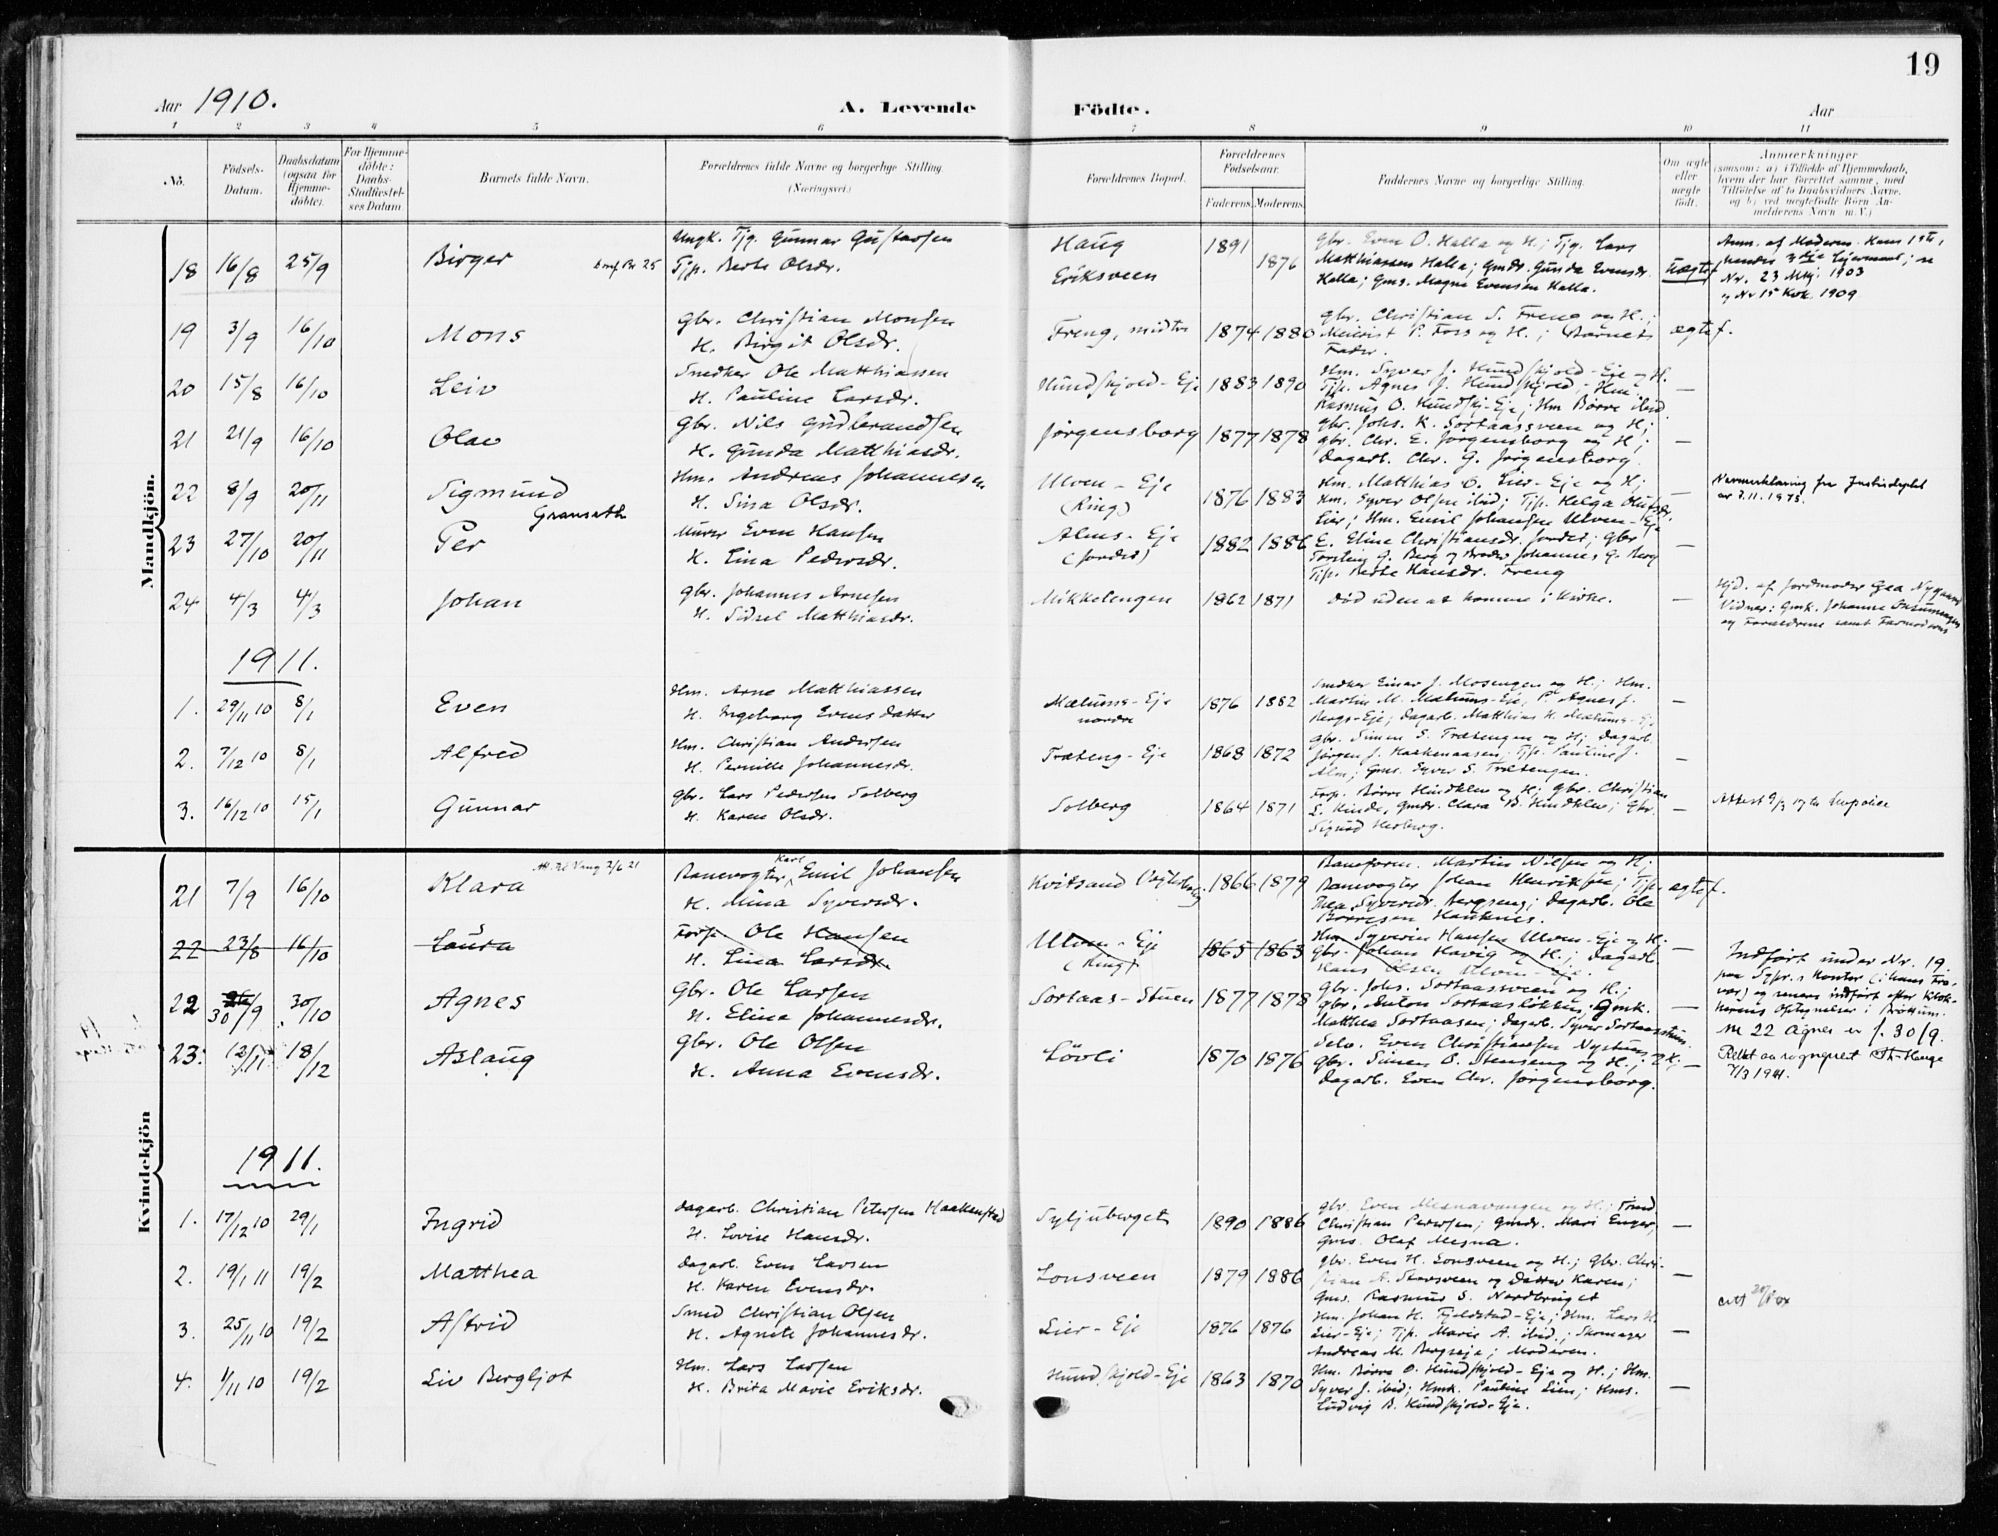 19
Aar 1910. A. Levende Födte. Aar
1 2 3 4 5 6 7 8 9 10 11
No. Födsels-Datum. Daabsdatum (ogsaa for Hjemme-döbte). For Hjemme-döbte: Daabs-Stadfæstel-ses Datum. Barnets fulde Navn. Forældrenes fulde Navne og borgerlige Stilling. (Næringsvei.) Forældrenes Bopæl. Forældrenes Födselsaar. Faderens. Moderens. Faddernes Navne og borgerlige Stilling. Om ægte eller uægte født. Anmærkninger (saasom: a) i Tilfælde af Hjemmedaab, hvem der har forrettet samme, med Tilföielse af to Daabsvidners Navne, og b) ved uægtefödte Börn Anmelderens Navn m.V.)
Mandkjön.
18 16/8 25/9 Birger Ungk. Tjg. Gunnar Gustavsen Haug 1891 gbr. Even O. Halla og H.; Tjg. Lars
Tjp. Berte Olsdr. Eriksveen 1876 Matthiassen Halla; gmdr. Gunda Evensdr. Uægtef.
Halla; gms. Magne Evensen Halla. Nr. 23 Mkj. 1903
og Nr 15 Kvk. 1909
19 3/9 16/10 Mons gbr. Christian Monsen Freng, midtre 1874 1880 gbr. Christian S. Freng og H.; ægtef.
H. Birgit Olsdr. Meierist P. Foss og H.; Barnets
Fader.
20 15/8 16/10 Leiv Snedker Ole Matthiassen Hundskjold-Eje 1883 1890 Hm. Syver J. Hundskjold-Eje og H. —
H. Pauline Larsdr. Tjp. Agnes J. Hundskjold; Hm.
Rasmus O. Hundskj-Eje; Hm Børre ibid.
21 21/9 16/10 Olav gbr. Nils Gudbrandsen Jørgensborg 1877 1878 gbr. Johs. K. Sortaasveen og H; —
H. Gunda Matthiasdr. gbr. Chr. E. Jørgensborg og H;
Dagarb. Chr. G. Jørgensborg.
22 8/9 20/11 Sigmund Hm. Andreas Johannesen Ulven-Eje 1876 1883 Hm. Matthias O. Lier-Eje og H; —
Gransæth H. Sina Olsdr. (Ring) Hm. Syver Olsen ibid; Tjp. Helga Olufsdr.
Lier; Hm. Emil Johansen Ulven-Eje
23 27/10 20/11 Per Murer Even Hansen Alms-Eje 1882 1886 E. Eline Christiansdr. Jordet; gbr —
H. Lina Pedersdr. (Jordet) Torstein G. Berg og Broder Johannes G. Berg
Tjp. Berte Hansdr. Freng
24 4/3 4/3 Johan gbr. Johannes Arnesen Mikkelengen 1862 1871 Død uden at komme i Kirke. — Hjd. af Jordmoder Gea Nygaard
H. Sidsel Matthiasdr. Vidner: Gmk. Johanne
og Forældrene samt Farmoderens
1911.
1. 29/11 10 8/1 Even Hm. Arne Matthiassen Mælums-Eje 1876 1882 Snedker Einar J. Mosengen og H.; Hm. —
H. Ingeborg Evensdatter nordre Martin M. Mælums-Eje, P. Agnes J.
Bergs-Eje; Dagarb. Matthias H. Mælums-Eje
2. 7/12 10 8/1 Alfred Hm. Christian Andersen Træteng-Eje 1868 1872 gbr. Simen S. Trætengen og H; Dagarb. —
H. Pernille Johannesdr. Jørgen J. Haakenaasen; Tjp. Pauline J.
Alm; Gms. Syver S. Trætengen.
3. 16/12 10 15/1 Gunnar gbr. Lars Pedersen Solberg Solberg 1864 1871 Forp. Børre Hindklev og H; gbr. Christian —
H. Karen Olsdr. L. Kinde, gmdr. Clara B. Hindklev; Gbr.
Sigurd Hesberg.
Kvindekjön
21 7/9 16/10 Klara Banevogter Karl Emil Johansen Kvitsand 1866 1879 Baneform. Martin Nilsen og H; ægtef.
H. Mina Syversdr. Banevogter Johan Henriksen; Tjp.
Thea Syversdr. Bergseng; Dagarb. Ole
22 23/8 16/10 Laura Forp. Ole Hansen Ulven-Eje 1865 1863 Hm Syverin Hansen Ulven-Eje og H. — Indført under Nr. 19
H. Lina Larsdr. (Ring) gbr. Johan Havig og H.; Dagarb.
Hans Olsen Ulven-Eje.
22 30/9 30/10 Agnes Gbr. Ole Larsen Sortaas-Stuen 1877 1878 Gbr. Johs. Sortaasveen og H.; —
H. Elina Johannesdr. gbr. Anton Sortaasløkken; Gmk.
Matthea Sortaasen; Dagarb. Syver Sortaasstuen.
Nr 22 Agnes er f. 30/9.
23. 12/11 18/12 Aslaug Gbr. Ole Olsen Løvli 1870 1876 Selv. Even Christiansen Nystuen —
H. Anna Evensdr. Gbr. Simen O. Stenseng og H.;
Dagarb. Even Chr. Jørgensborg.
7/3 1941.
1911.
1. 17/12 10 29/1 Ingrid Dagarb. Christian Petersen Haakenstad Syljuberget 1890 1886 gbr. Even Mesnavangen og H.; Tømd —
H. Lovise Hansdr. Christian Pedersen; gmdr. Mari Enger,
gms. Olaf Mesna.
2. 19/1 11 19/2 Matthea Dagarb. Even Larsen Lonsveen 1879 1886 gbr. Even H. Lonsveen og H.; Gbr. Chri- —
H. Karen Evensdr. stian A. Storsveen og Datter Karen;
Gms. Rasmus S. Nordbruget
3. 25/11 10 19/2 Astrid Smed Christian Olsen Lier-Eje 1876 1876 Hm. Johan H. Fjeldstad-Eje; Hm. Lars H. —
H. Agnete Johannesdr. Lier-Eje; Tjp. Marie A. ibid.; Skomager
Andreas M. Bergseje; Moderen.
4. 1/11 10 19/2 Liv Bergljot Hm. Lars Larsen Hundskjold-Eje 1863 1870 Hm. Børre O. Hundskjold-Eje og H.; Hm. —
H. Brita Marie Eriksdr. Syver J. ibid; Hmk. Pauline Lien; Hms.
Ludvig B. Hundskjold-Eje.